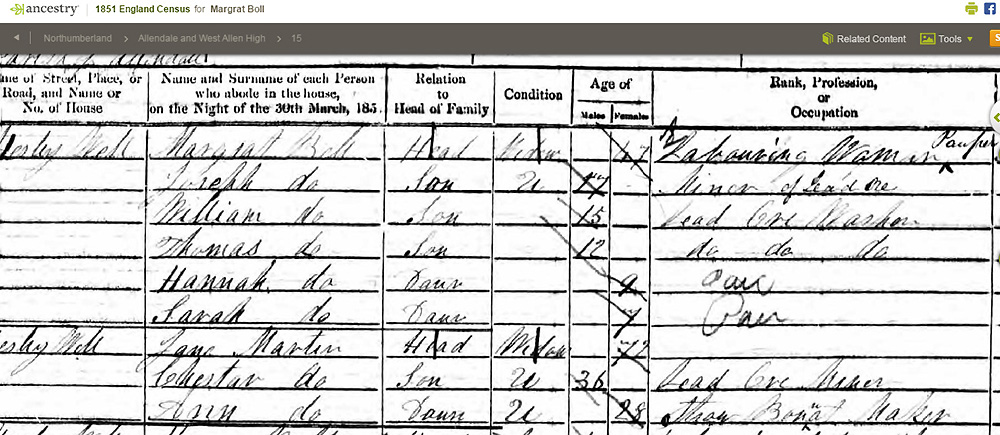 ancestry 1851 England Census for Margrat Boll
Northumberland > Allendale and West Allen High > 15 Related Content Tools
Parish of Allendale
ame of Street, Place, or Road, and Name or No. of House
Name and Surname of each Person who abode in the house, on the Night of the 30th March, 185
Relation to Head of Family
Condition
Age of
Males Females
Rank, Profession, or Occupation
Well Margrat Bell Head Widow 47 Labouring Woman Pauper
Joseph do Son U 17 Miner of Lead Ore
William do Son 15 Lead Ore Washer
Thomas do Son 12 do do do
Hannah do Daur 9
Sarah do Daur 7
Well Jane Martin Head Widow 72
Do Son U 36 Lead Ore Miner
Ann do Daur U 28 Straw Bonat Maker